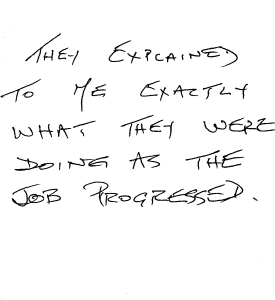 THEY EXPLAINED
TO ME EXACTLY
WHAT THEY WERE
DOING AS THE
JOB PROGRESSED.